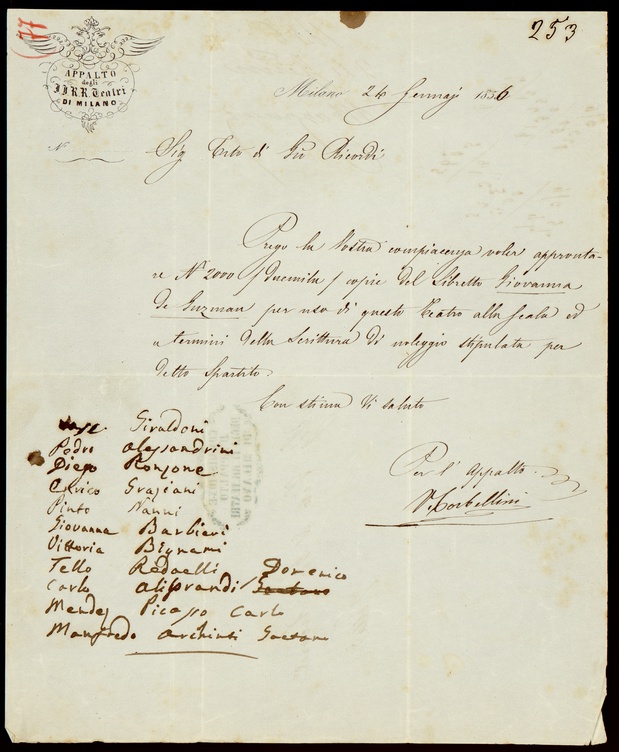 77
253
APPALTO
degli
II. RR. Teatri
DI MILANO
Milano 26 Gennajo 1856
N.
Sig Tito di Gio Ricordi
Prego la Vostra compiacenza voler appronta-
re N° 2000 / duemila / copie del Libretto Giovanna
de Guzman per uso di questo Teatro alla Scala ed
a termini della Scrittura di noleggio stipulata per
detto Spartito.
Con stima Vi saluto
Per l'Appalto
Corbellini
Giraldoni
Pedro Alessandrini
Diego Ronzone
Graziani
Pinto Nanni
Giovanna Barbieri
Vittoria Bignami
Tello Redaelli Domenico
Carlo Aliprandi Gaetano
Mendez Picasso Carlo
Manfredo Archinti Gaetano